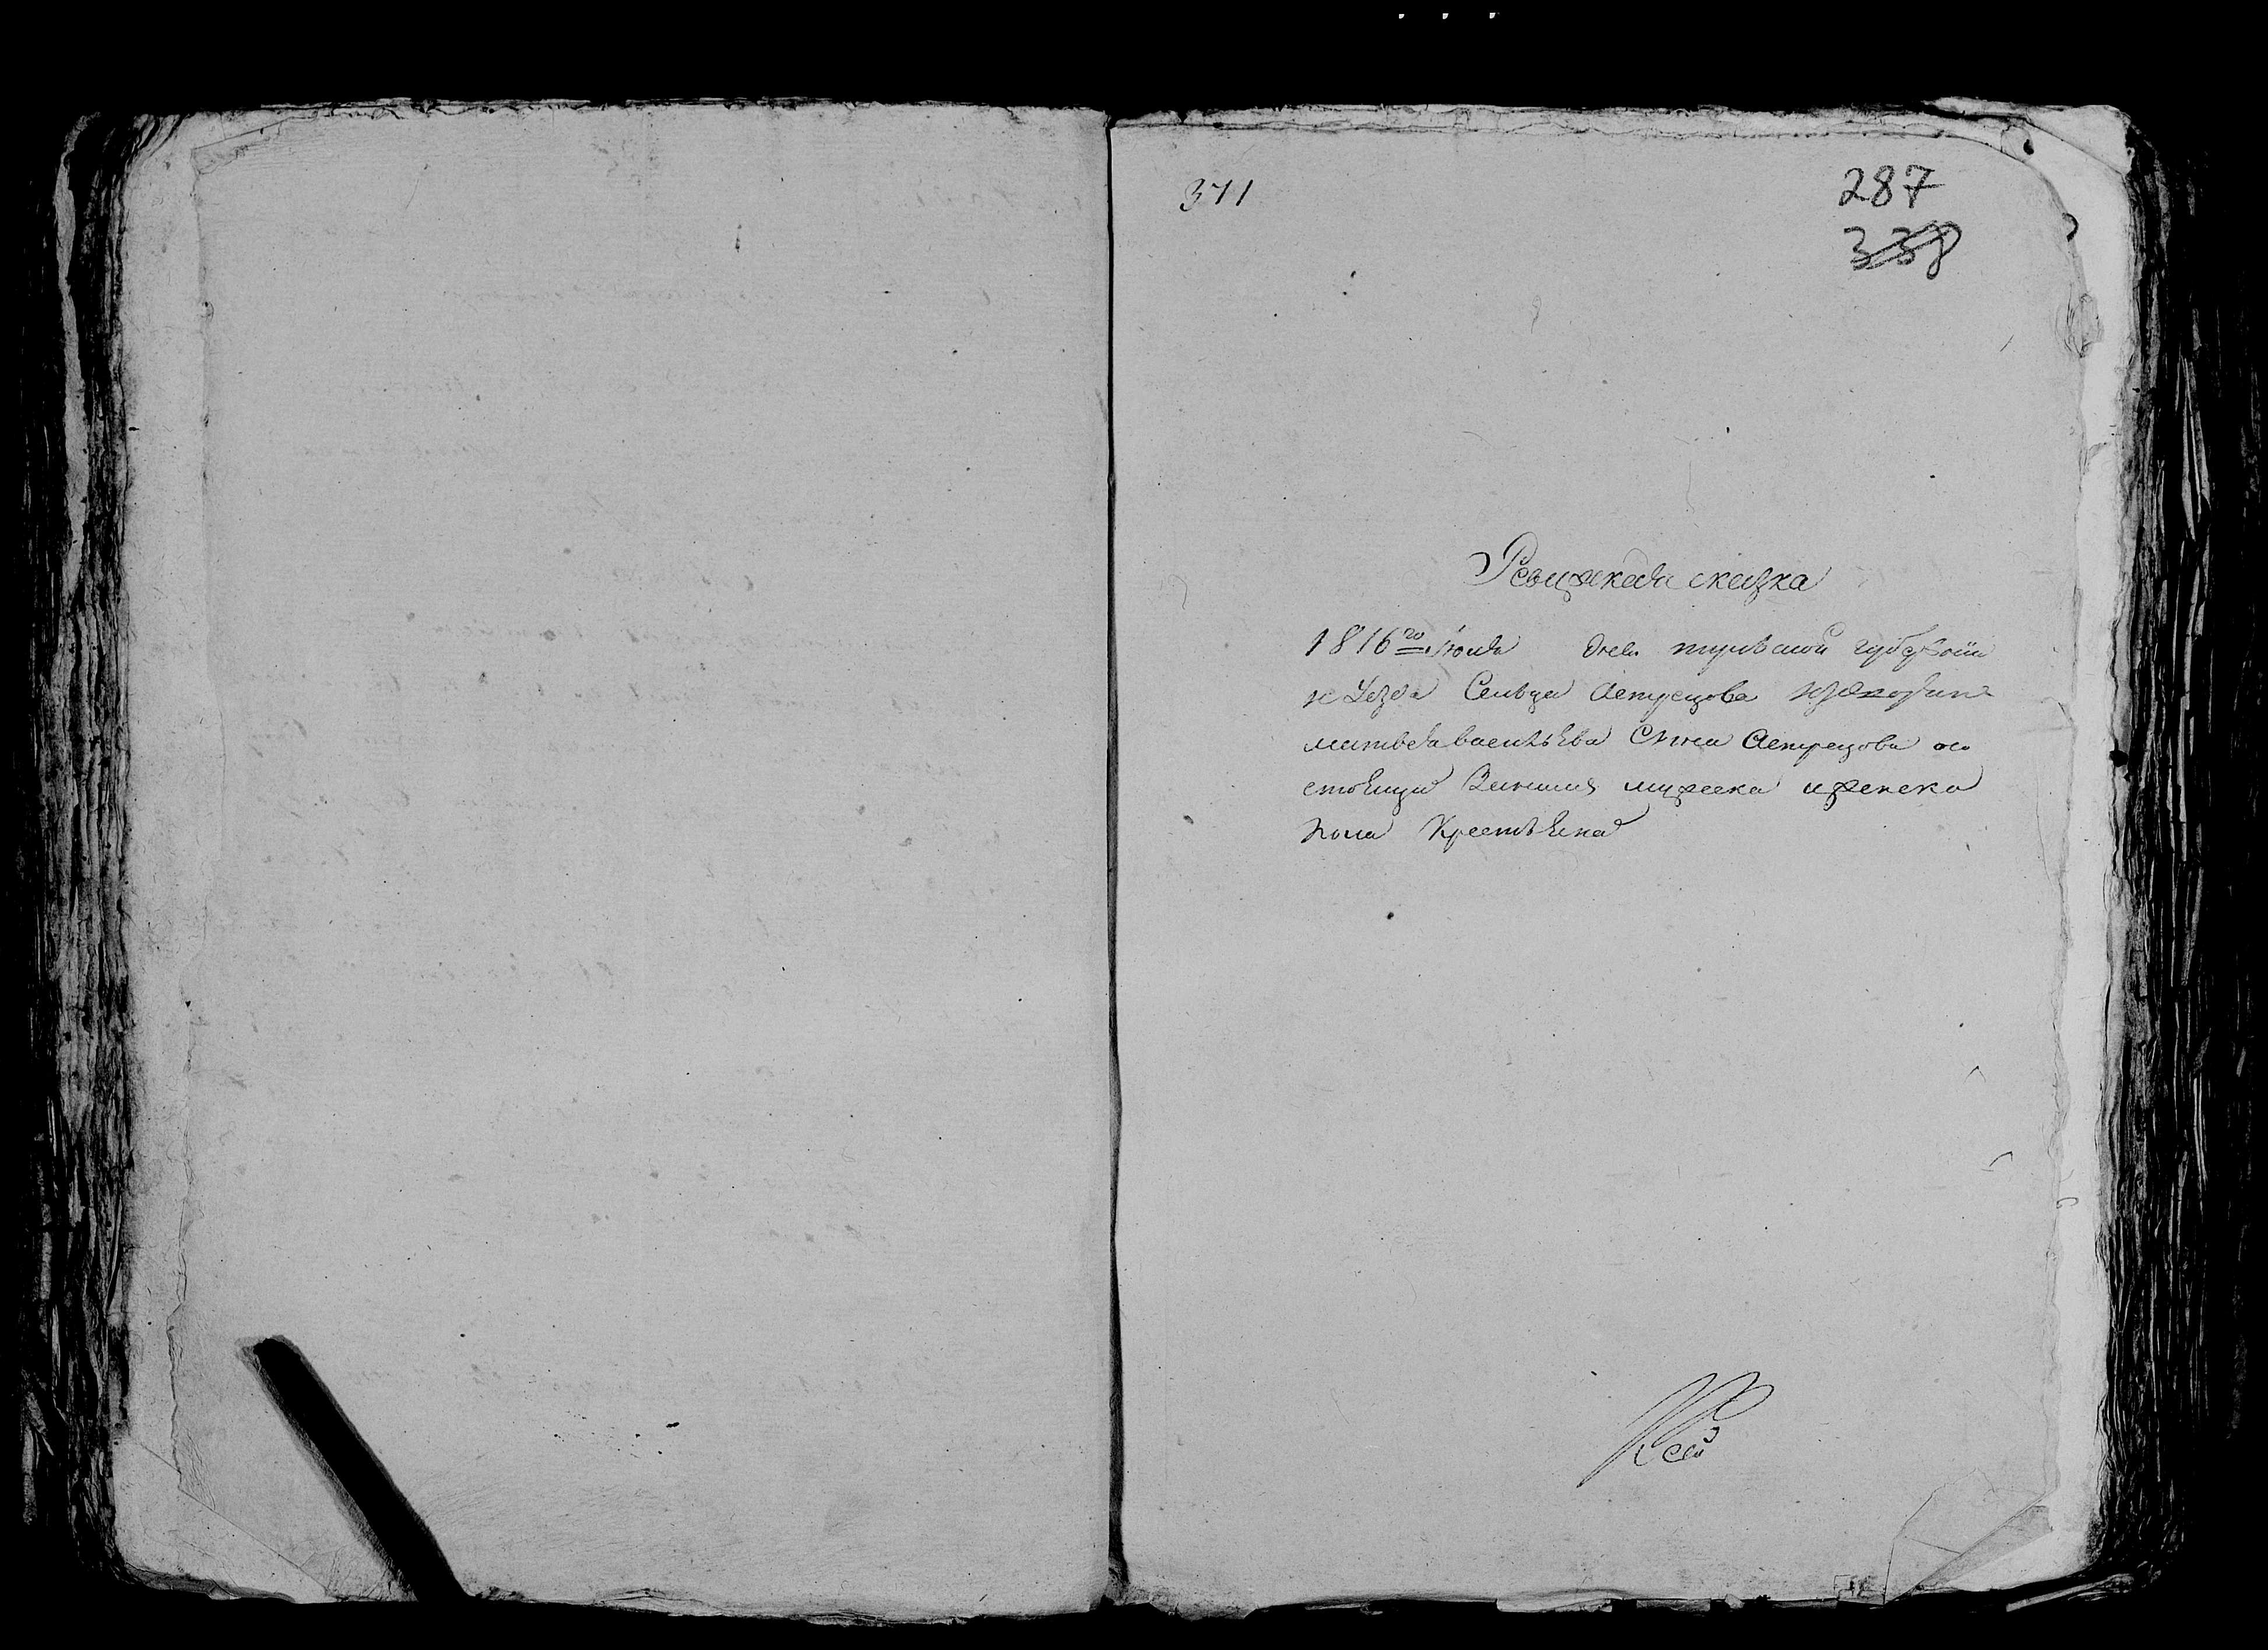 371
287
338
Ревижская скаска
1816го июля дня тульской губернии
и Уезда Сельца Астрецова
матвея васильева Сына Астрецова о со
стоящи мужеска и женска
пола Крестьяна